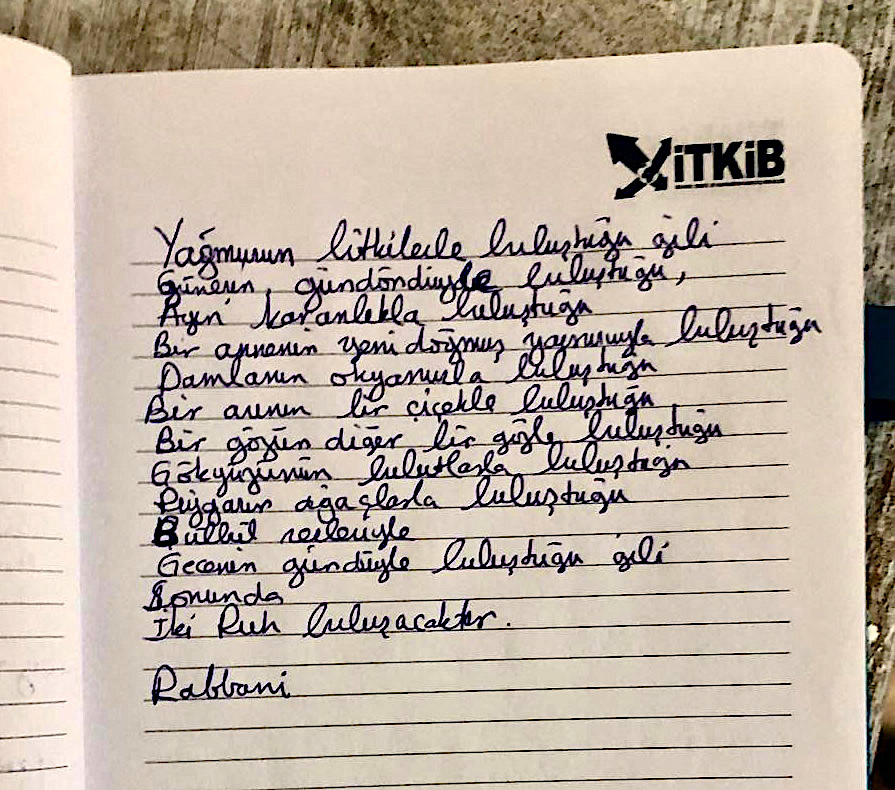 İTKİB
Yağmurun bitkilerle buluştuğu gibi
Güneşin, gündöndüyle buluştuğu,
Ayın karanlıkla buluştuğu
Bir annenin yeni doğmuş yavrusuyla buluştuğu
Damlanın okyanusla buluştuğu
Bir arının bir çiçekle buluştuğu
Bir gözün diğer bir gözle buluştuğu
Gökyüzünün bulutlarla buluştuğu
Rüzgarın ağaçlarla buluştuğu
Bülbül sesleriyle
Gecenin gündüzle buluştuğu gibi
Sonunda
İki Ruh buluşacaktır.
Rabbani